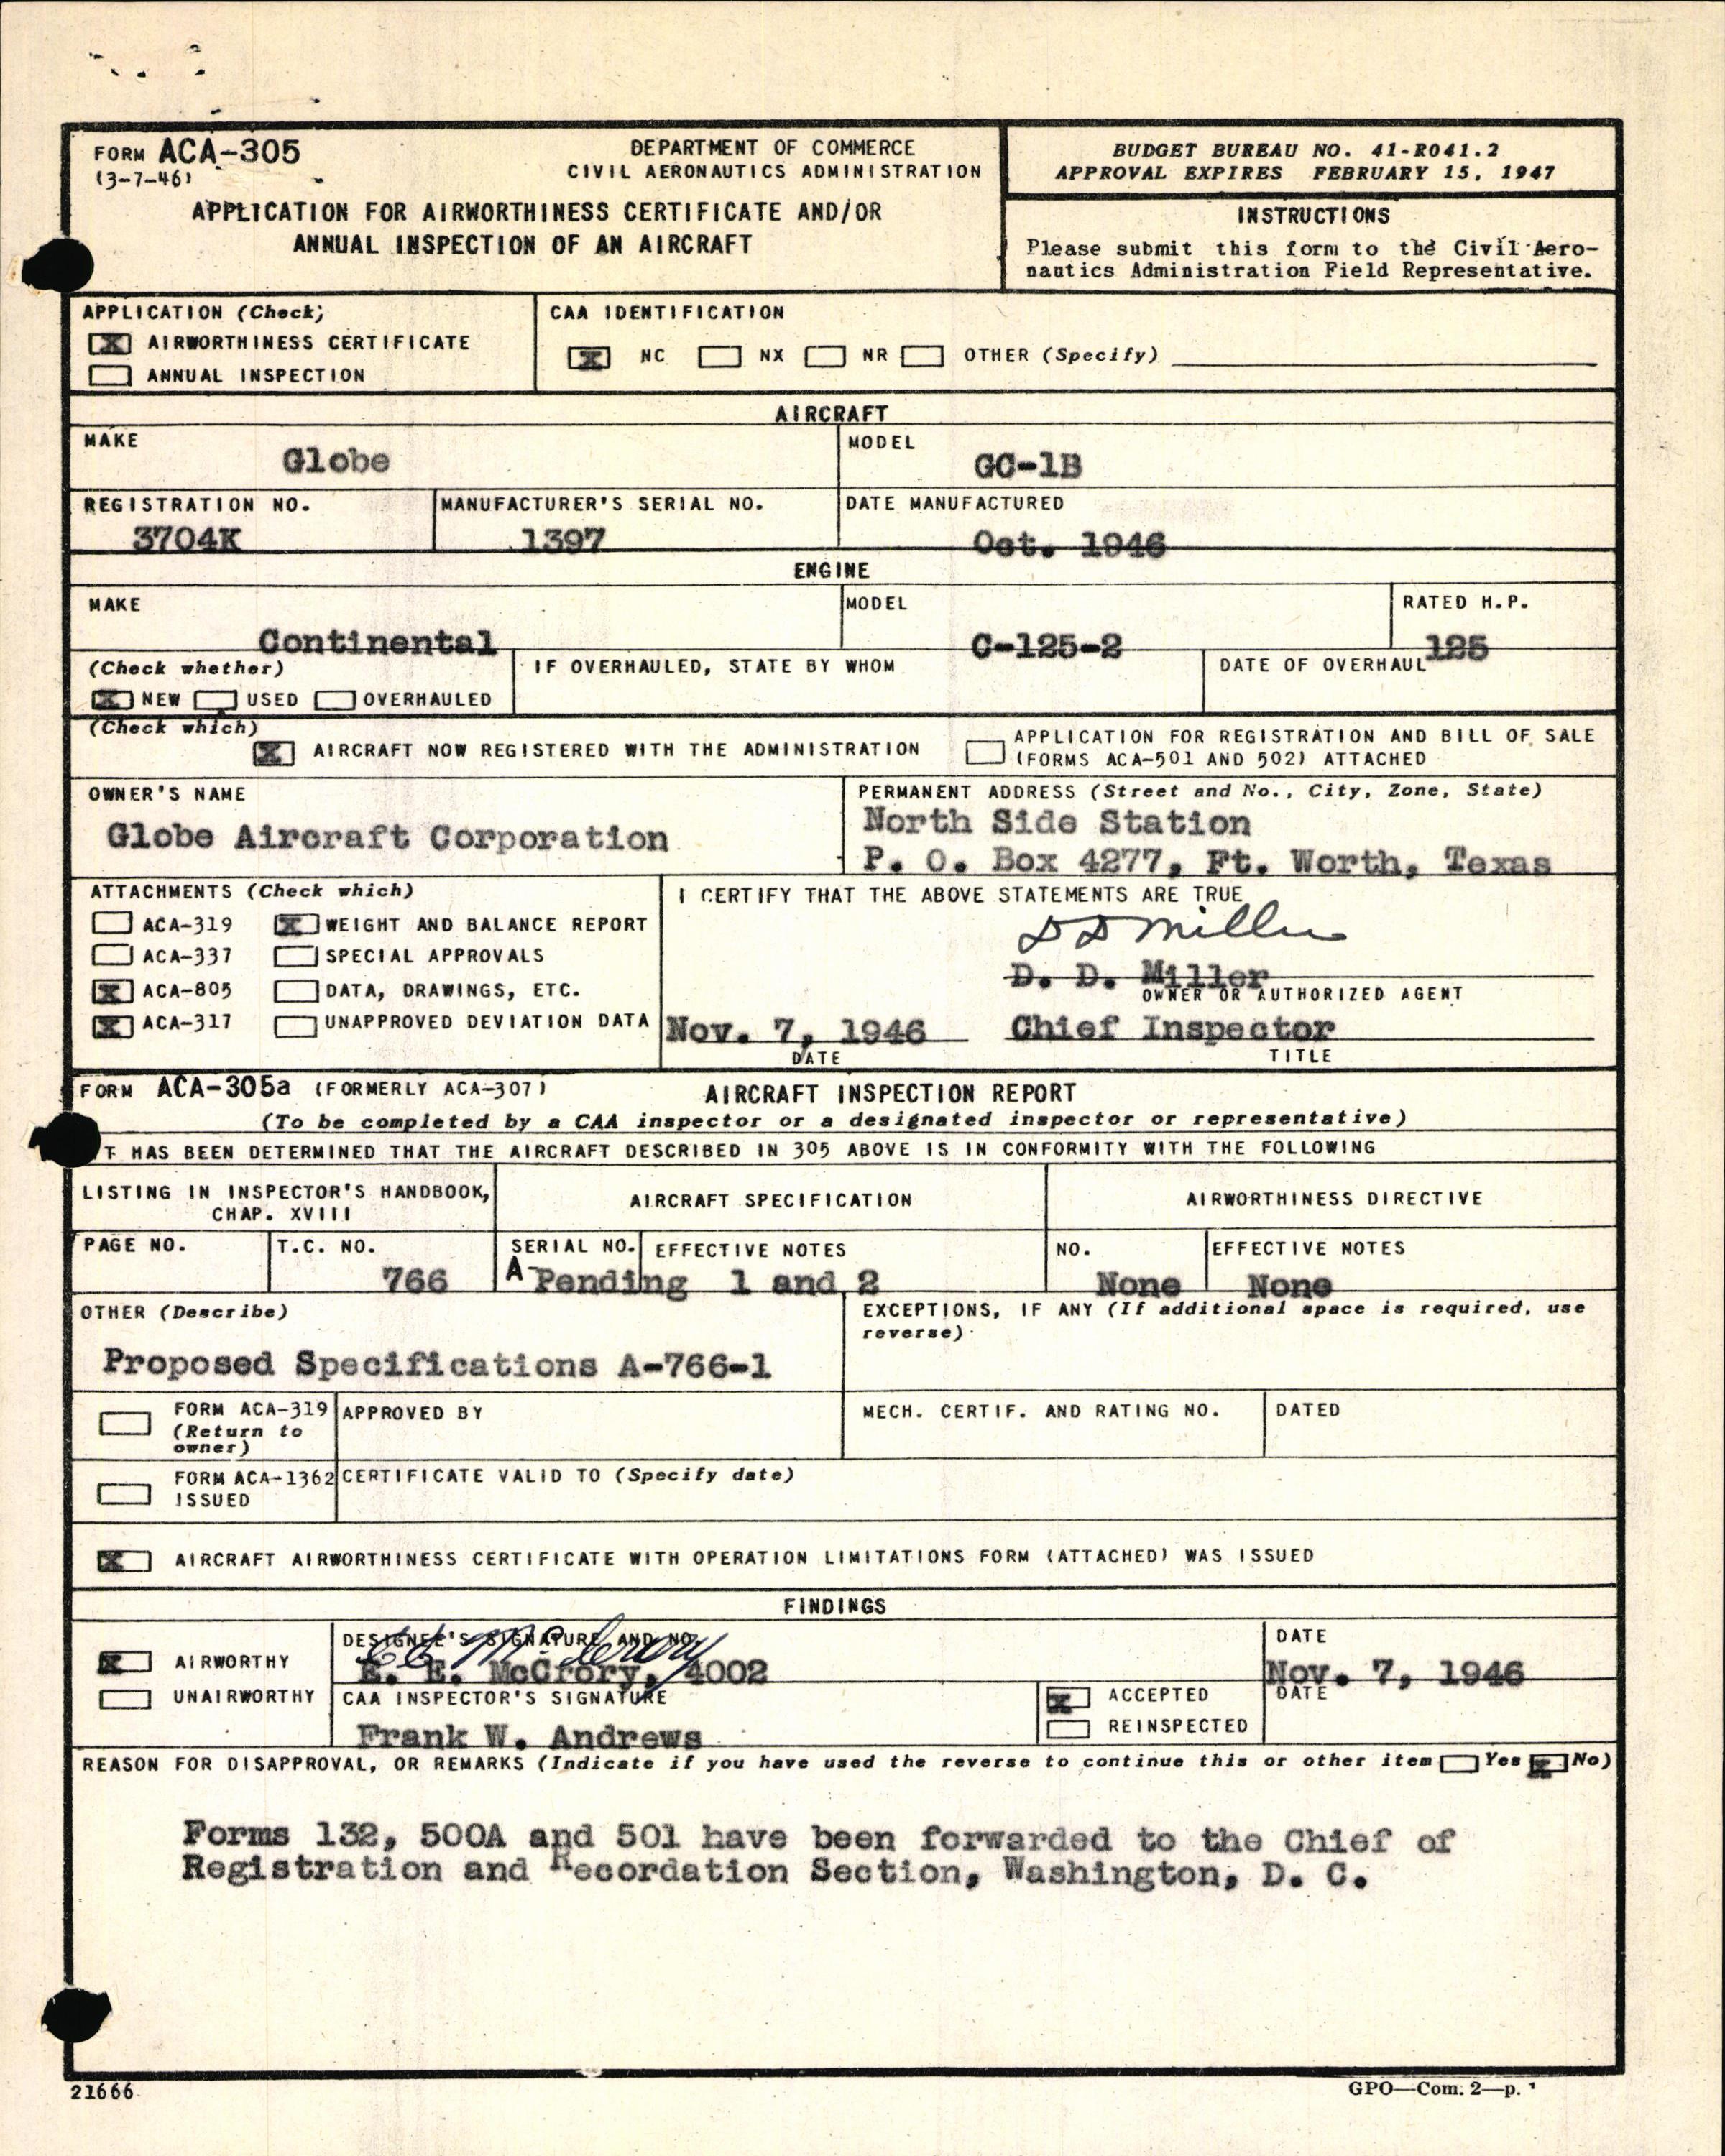 FORM ACA-305
(3-7-46)
DEPARTMENT OF COMMERCE
CIVIL AERONAUTICS ADMINISTRATION
APPLICATION FOR AIRWORTHINESS CERTIFICATE AND/OR
ANNUAL INSPECTION OF AN AIRCRAFT
BUDGET BUREAU NO. 41-R041.2
APPROVAL EXPIRES FEBRUARY 15, 1947
INSTRUCTIONS
Please submit this form to the Civil Aero-
nautics Administration Field Representative.
APPLICATION (Check)
X AIRWORTHINESS CERTIFICATE
ANNUAL INSPECTION
CAA IDENTIFICATION
X NC NX NR OTHER (Specify)
AIRCRAFT
MAKE
Globe
MODEL
GC-1B
REGISTRATION NO.
3704K
MANUFACTURER'S SERIAL NO.
1397
DATE MANUFACTURED
Oct. 1946
ENGINE
MAKE
Continental
MODEL
C-125-2
RATED H.P.
125
(Check whether)
X NEW USED OVERHAULED
IF OVERHAULED, STATE BY WHOM
DATE OF OVERHAUL
(Check which)
X AIRCRAFT NOW REGISTERED WITH THE ADMINISTRATION
APPLICATION FOR REGISTRATION AND BILL OF SALE
(FORMS ACA-501 AND 502) ATTACHED
OWNER'S NAME
Globe Aircraft Corporation
PERMANENT ADDRESS (Street and No., City, Zone, State)
North Side Station
P. O. Box 4277, Ft. Worth, Texas
ATTACHMENTS (Check which)
ACA-319 X WEIGHT AND BALANCE REPORT
ACA-337 SPECIAL APPROVALS
X ACA-805 DATA, DRAWINGS, ETC.
X ACA-317 UNAPPROVED DEVIATION DATA
I CERTIFY THAT THE ABOVE STATEMENTS ARE TRUE
D D Miller
D. D. Miller
OWNER OR AUTHORIZED AGENT
Nov. 7, 1946 Chief Inspector
DATE TITLE
FORM ACA-305a (FORMERLY ACA-307) AIRCRAFT INSPECTION REPORT
(To be completed by a CAA inspector or a designated inspector or representative)
T HAS BEEN DETERMINED THAT THE AIRCRAFT DESCRIBED IN 305 ABOVE IS IN CONFORMITY WITH THE FOLLOWING
LISTING IN INSPECTOR'S HANDBOOK,
CHAP. XVIII
AIRCRAFT SPECIFICATION
AIRWORTHINESS DIRECTIVE
PAGE NO.
T.C. NO.
766
SERIAL NO.
A-Pending
EFFECTIVE NOTES
1 and 2
NO.
None
EFFECTIVE NOTES
None
OTHER (Describe)
Proposed Specifications A-766-1
EXCEPTIONS, IF ANY (If additional space is required, use
reverse)
FORM ACA-319
(Return to
owner)
APPROVED BY
MECH. CERTIF. AND RATING NO.
DATED
FORM ACA-1362
ISSUED
CERTIFICATE VALID TO (Specify date)
X AIRCRAFT AIRWORTHINESS CERTIFICATE WITH OPERATION LIMITATIONS FORM (ATTACHED) WAS ISSUED
FINDINGS
X AIRWORTHY
UNAIRWORTHY
DESIGNEE'S SIGNATURE AND NO.
E E McCrory
E. E. McCrory, 4002
DATE
Nov. 7, 1946
CAA INSPECTOR'S SIGNATURE
Frank W. Andrews
X ACCEPTED
REINSPECTED
DATE
REASON FOR DISAPPROVAL, OR REMARKS (Indicate if you have used the reverse to continue this or other item Yes X No)
Forms 132, 500A and 501 have been forwarded to the Chief of
Registration and Recordation Section, Washington, D. C.
21666
GPO—Com. 2—p.